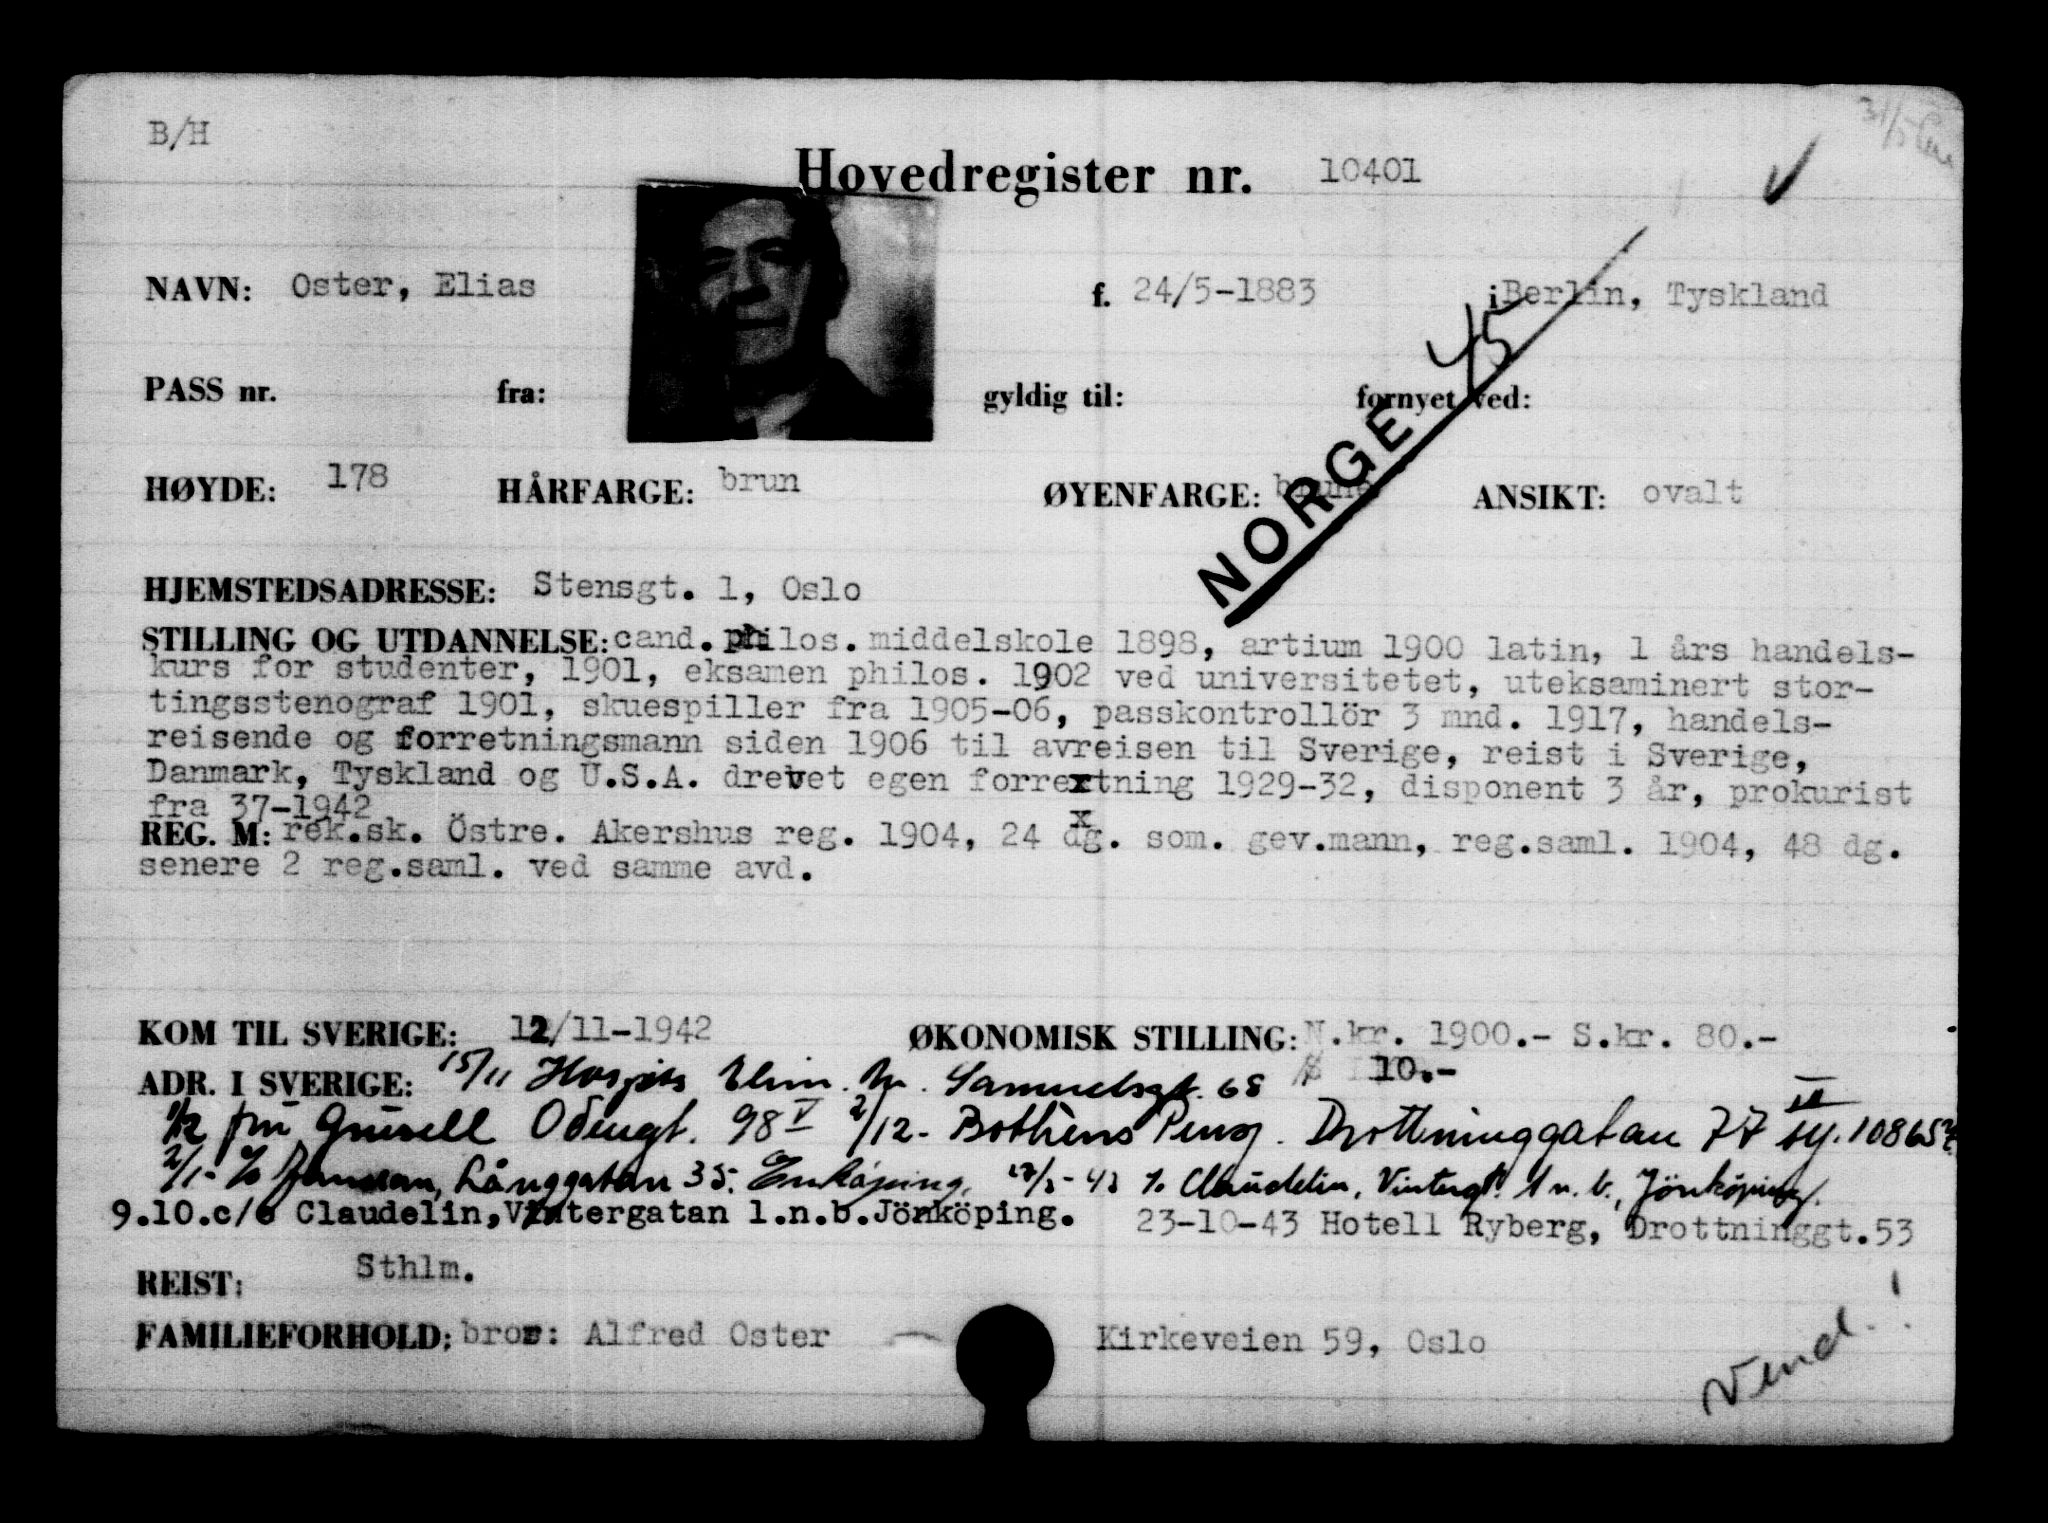 B/H
31/5
Hovedregister nr. 10401
NAVN: Oster, Elias f. 24/5-1883 i Berlin, Tyskland
PASS nr. fra: gyldig til: fornyet ved:
NORGE 45
HØYDE: 178 HÅRFARGE: brun ØYENFARGE: brune ANSIKT: ovalt
HJEMSTEDSADRESSE: Stensgt. 1, Oslo
STILLING OG UTDANNELSE: cand.philos. middelskole 1898, artium 1900 latin, 1 års handels-
kurs for studenter, 1901, eksamen philos. 1902 ved universitetet, uteksaminert stor-
tingsstenograf 1901, skuespiller fra 1905-06, passkontrollör 3 mnd. 1917, handels-
reisende og forretningsmann siden 1906 til avreisen til Sverige, reist i Sverige,
Danmark, Tyskland og U.S.A. drevet egen forrextning 1929-32, disponent 3 år, prokurist
fra 37-1942
REG. M: rek.sk. Östre. Akershus reg. 1904, 24 dg. som. gev.mann, reg.saml. 1904, 48 dg.
senere 2 reg.saml. ved samme avd.
KOM TIL SVERIGE: 12/11-1942 ØKONOMISK STILLING: N.kr. 1900.- S.kr. 80.-
$ 10.-
ADR. I SVERIGE: 15/11 Hospits Elim. St. Samuelsgt. 68
1/12 fru Grusell Odengt. 98 V 2/12- Bothens Pens. Drottninggatan 77 II
2/1- c/o Långgatan 35. Enköping. 43 c/o Claudelin, Vintergt. 1 n. b., Jönköping.
9.10.c/o Claudelin, Vintergatan 1.n.b.Jönköping. 23-10-43 Hotell Ryberg, Drottninggt.53
Sthlm.
REIST:
FAMILIEFORHOLD: bror: Alfred Oster Kirkeveien 59, Oslo
Vend!